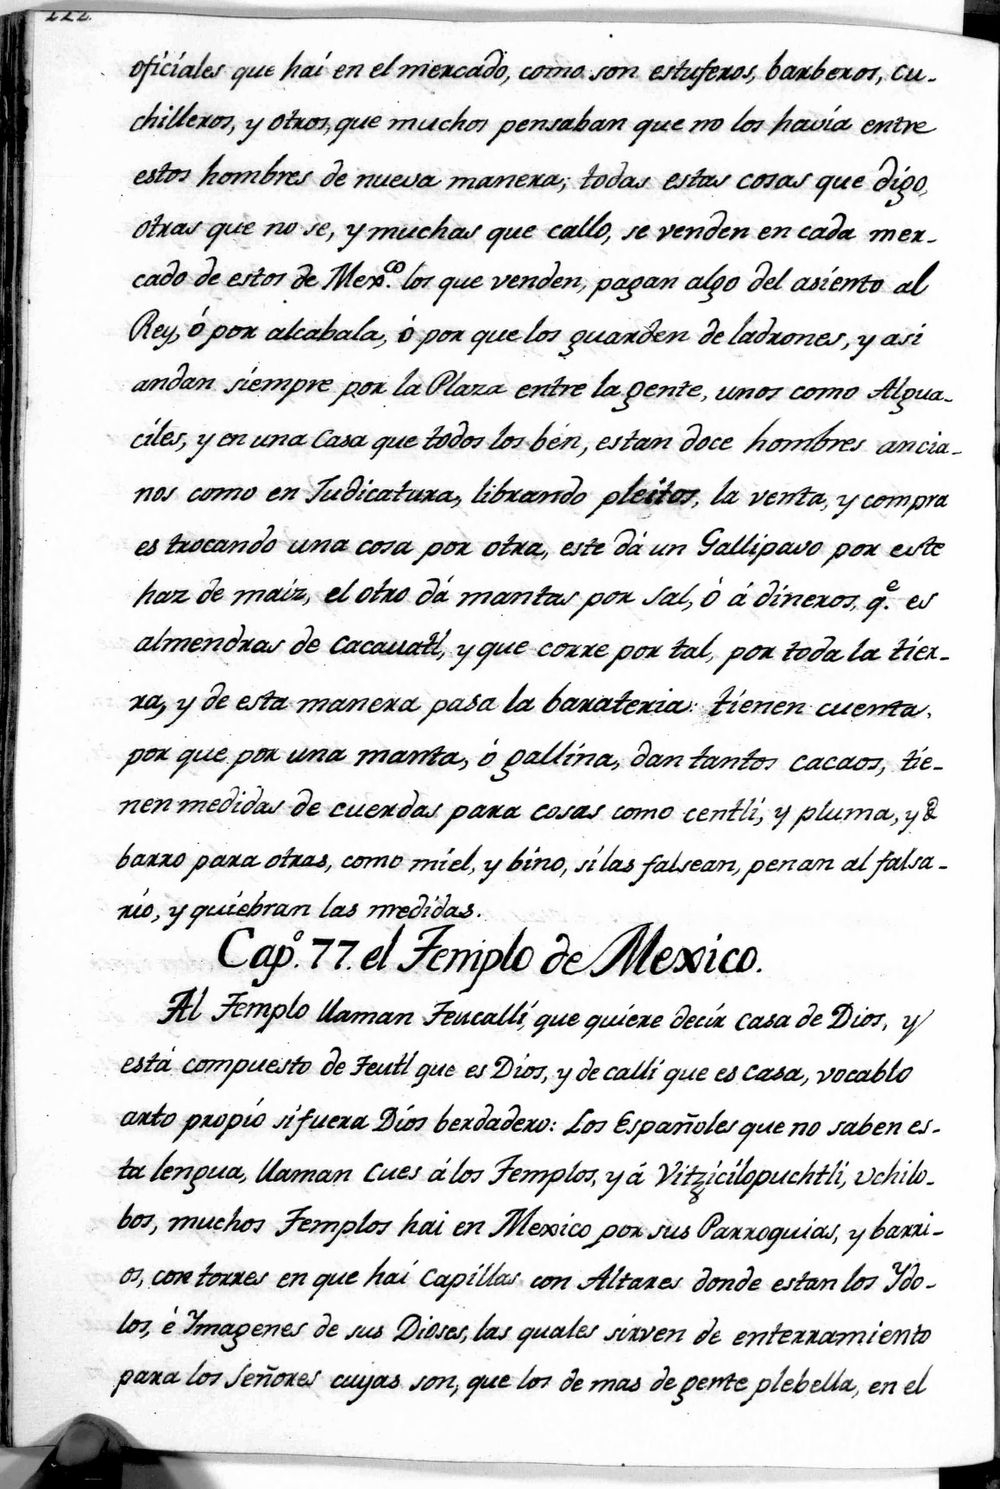 222.
oficiales que hai en el mercado, como son estuferos, barberos, cu-
chilleros, y otros, que muchos pensaban que no los havía entre
estos hombres de nueva manera; todas estas cosas que digo,
otras que no se, y muchas que callo, se venden en cada mer-
cado de estos de Mex.co los que venden, pagan algo del asiento al
Rey, ó por alcabala, ò por que los guarden de ladrones, y asi
andan siempre por la Plaza entre la gente, unos como Algua-
ciles, y en una Casa que todos los bén, estan doce hombres ancia-
nos como en Judicatura, librando pleitos, la venta, y compra
es trocando una cosa por otra, este dá un Gallipavo por este
haz de maiz, el otro dá mantas por Sal, ó á dineros, q.e es
almendras de Cacauatl, y que corre por tal, por toda la tier-
ra, y de esta manera pasa la barateria: tienen cuenta,
por que por una manta, ó gallina, dan tantos cacaos, tie-
nen medidas de cuerdas para cosas como centli, y pluma, y de
barro para otras, como miel, y bino, si las falsean, penan al falsa-
rio, y quiebran las medidas.
Cap.o 77. el Templo de Mexico.
Al Templo llaman Teucalli, que quiere decir Casa de Dios, y
está compuesto de Teutl que es Dios, y de calli que es casa, vocablo
arto propio si fuera Dios berdadero: Los Españoles que no saben es-
ta lengua, llaman Cues á los Templos, y á Vitzicilopuchtli, vchilo-
bos, muchos Templos hai en Mexico por sus Parroquias, y barri-
os, con torres en que hai Capillas con Altares donde estan los Ydo-
los, é Ymagenes de sus Dioses, las quales sirven de enterramiento
para los Señores cuyas son, que los de mas de gente plebella, en el